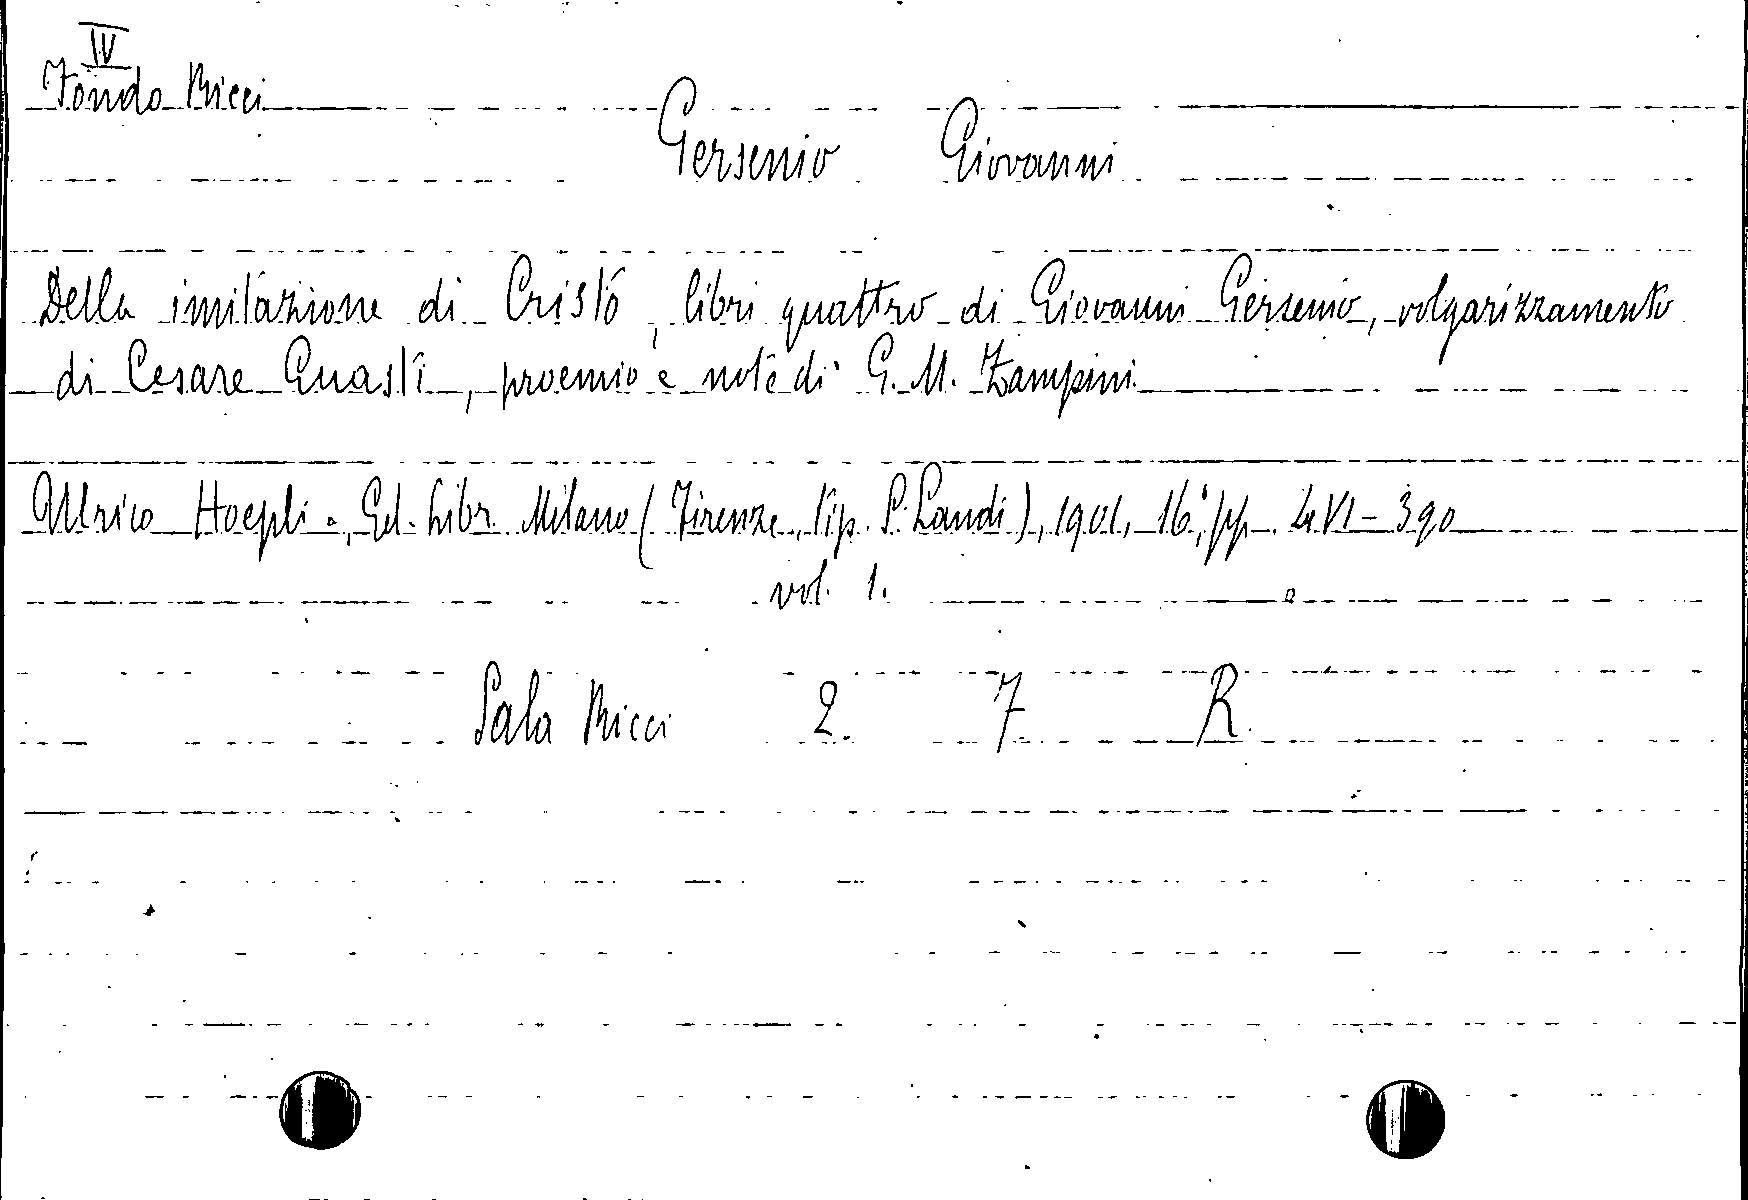 IV
Fondo Ricci
Gersenio Giovanni
Della imitazione di Cristo, libri quattro di Giovanni Gersenio, volgarizzamento
di Cesare Guasti, proemio e note di G. M. Zampini.
Ulrico Hoepli, Ed. Libr. Milano (Firenze, tip. S. Landi), 1901, 16°, pp. LVI - 390
vol. 1.
Sala Ricci 2. 7 R.